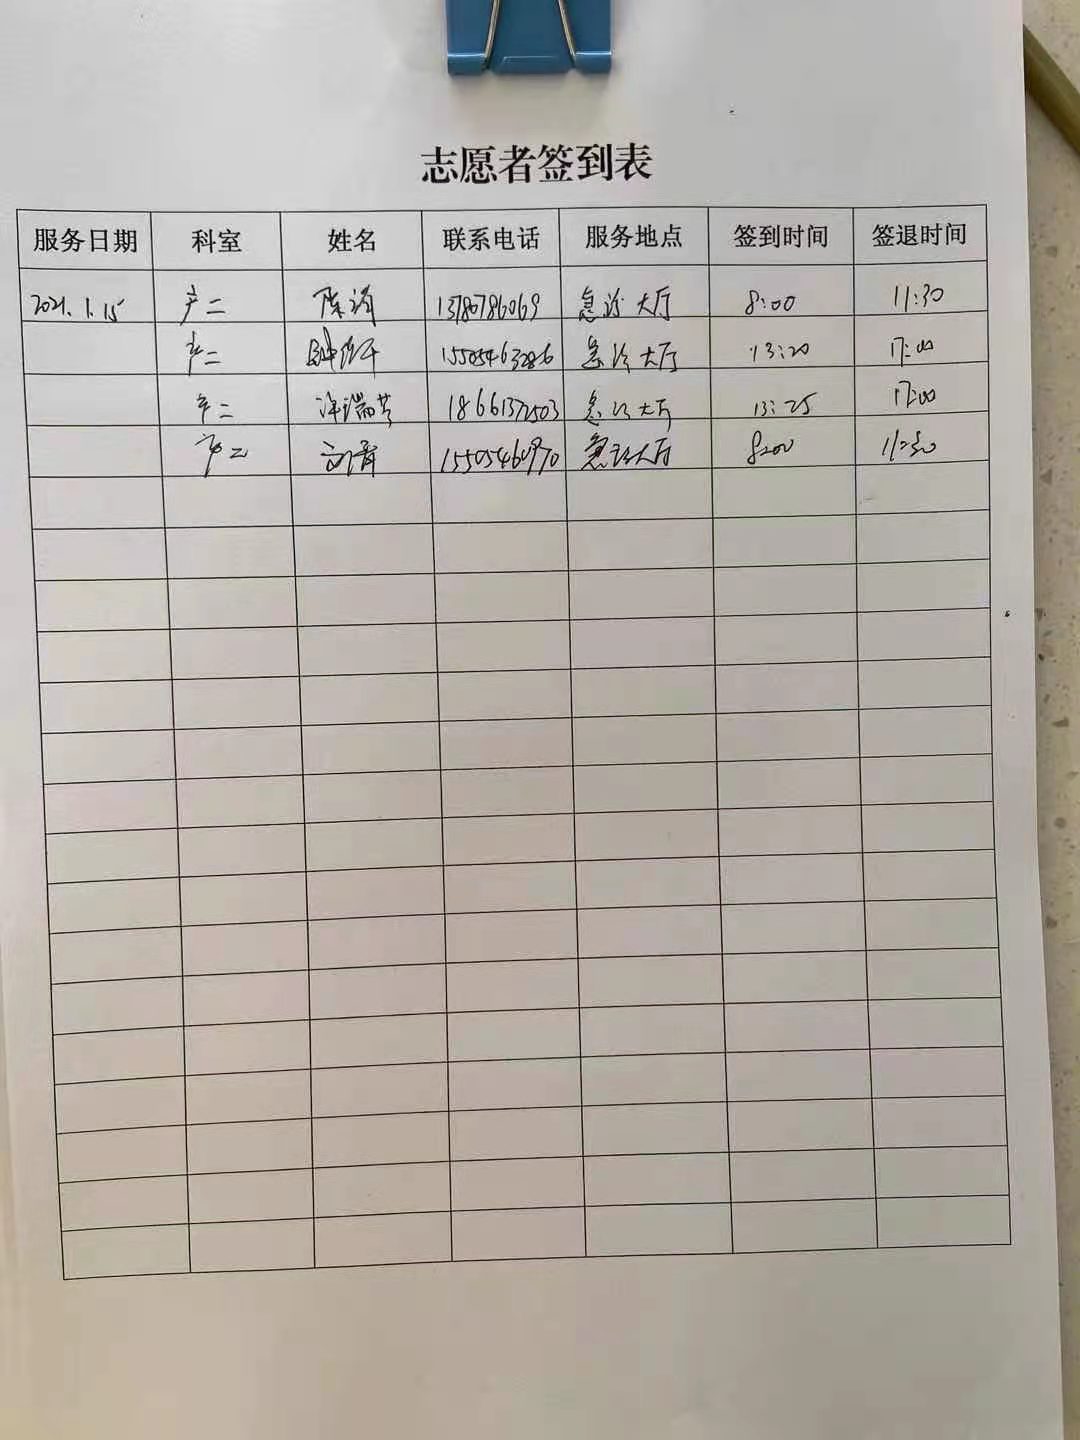 志愿者签到表
服务日期 科室 姓名 联系电话 服务地点 签到时间 签退时间
2021.1.15 产二 陈 13780786069 急诊大厅 8:00 11:30
产二 15505463286 急诊大厅 13:20 17:00
产二 许瑞芳 18661372503 急诊大厅 13:25 17:00
产二 15505460970 急诊大厅 8:00 11:30